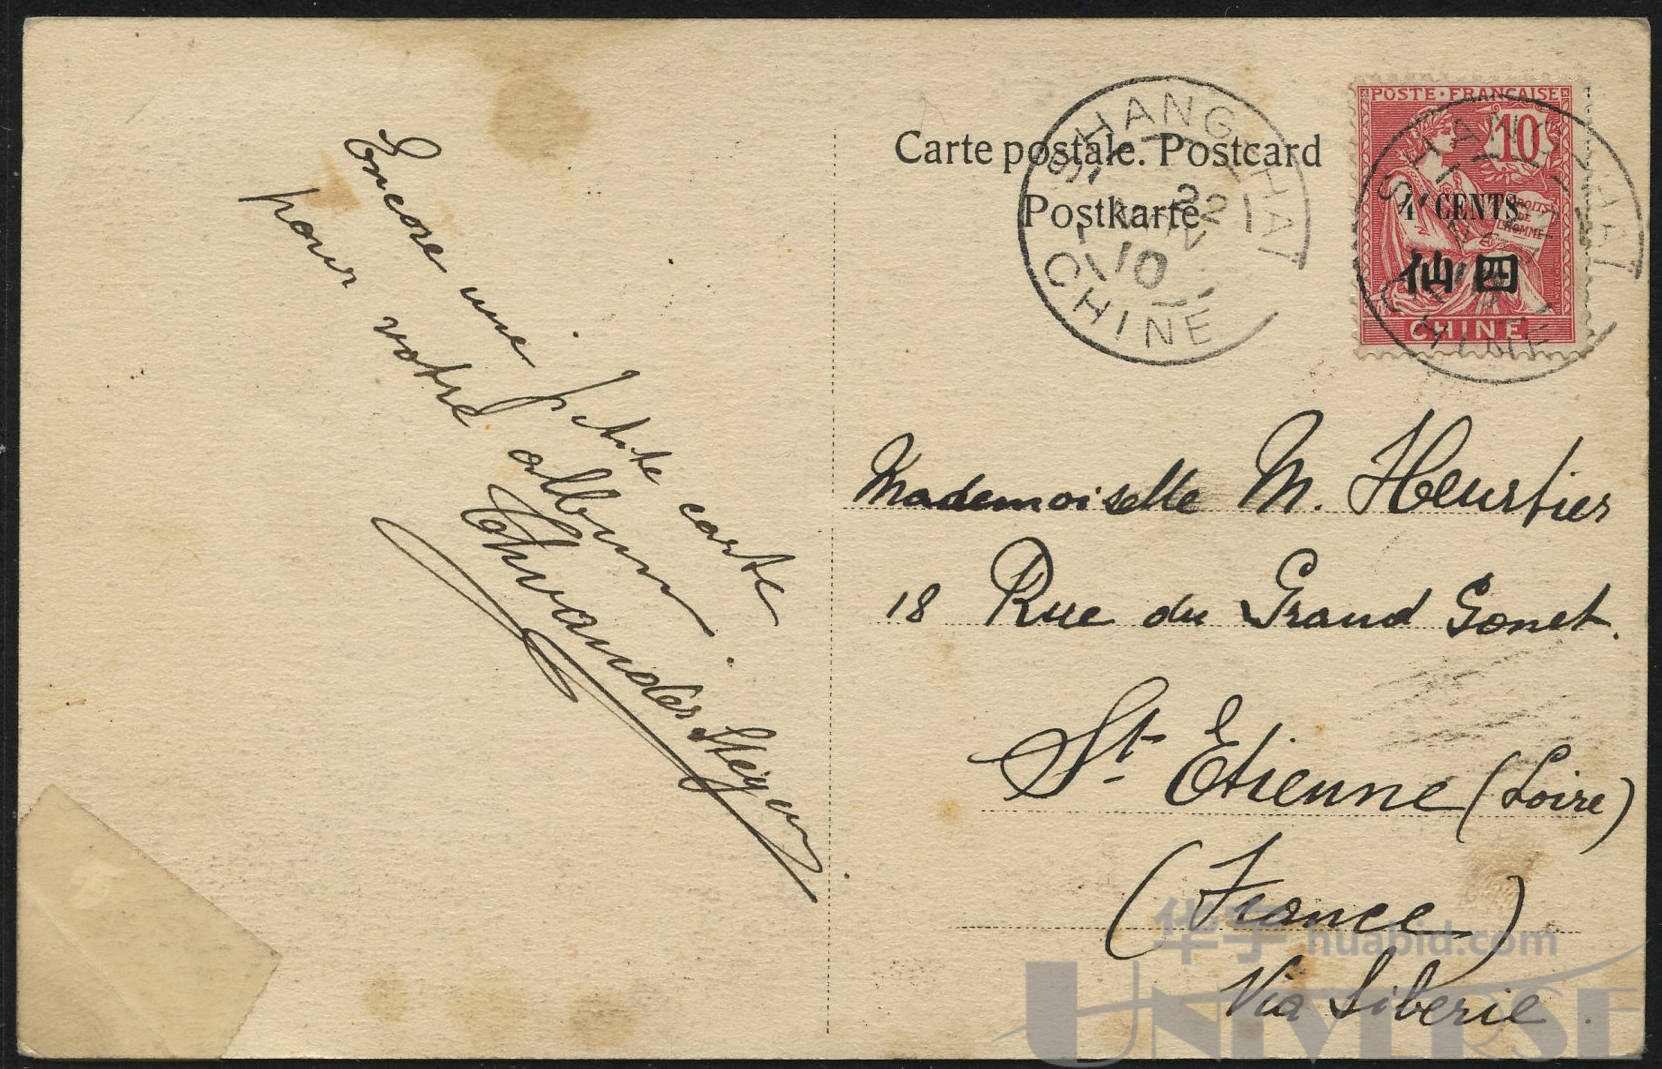 Carte postale. Postcard
Postkarte
SHANG-HAI
22
10
CHINE
POSTE·FRANÇAISE
10
4 CENTS
DROITS
DE
L'HOMME
仙四
CHINE
SHANG-HAI
CHINE
Encore une petite carte
pour votre album.
Mademoiselle M. Heurtier
18 Rue du Grand Gonet.
St Etienne (Loire)
(France)
Via Siberie.
华宇 huabid.com
UNIVERSE